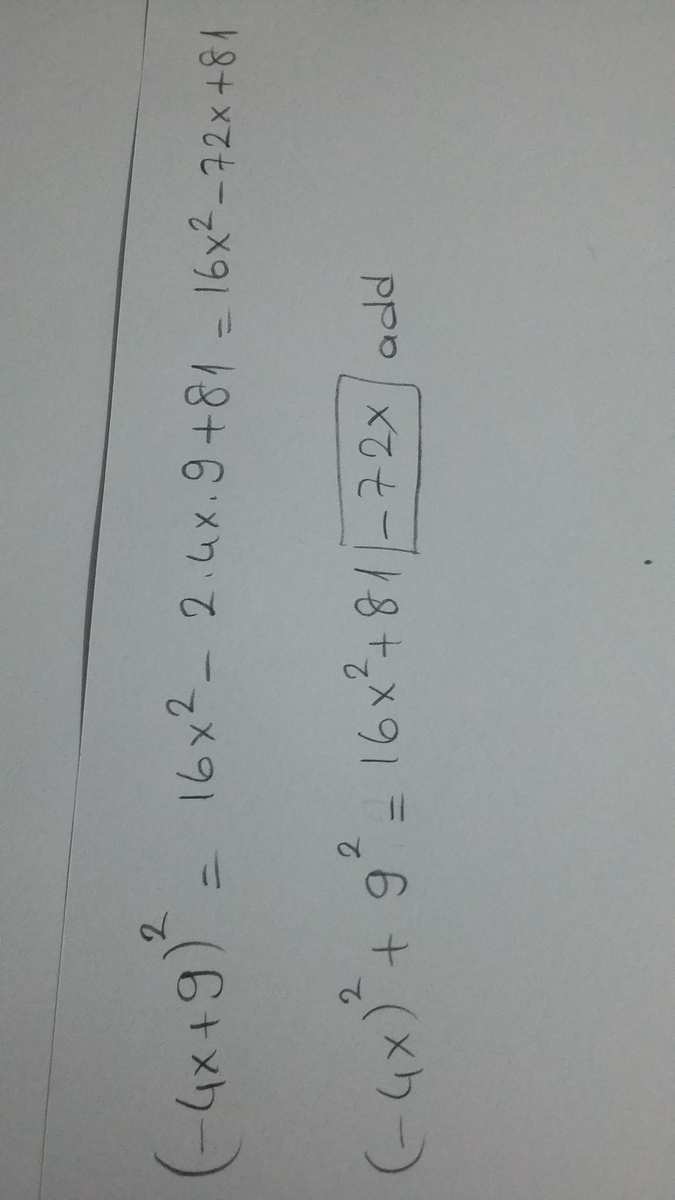 (-4x+9)² = 16x² - 2·4x·9+81 = 16x²-72x+81
(-4x)² + 9² = 16x²+81 |-72x| add